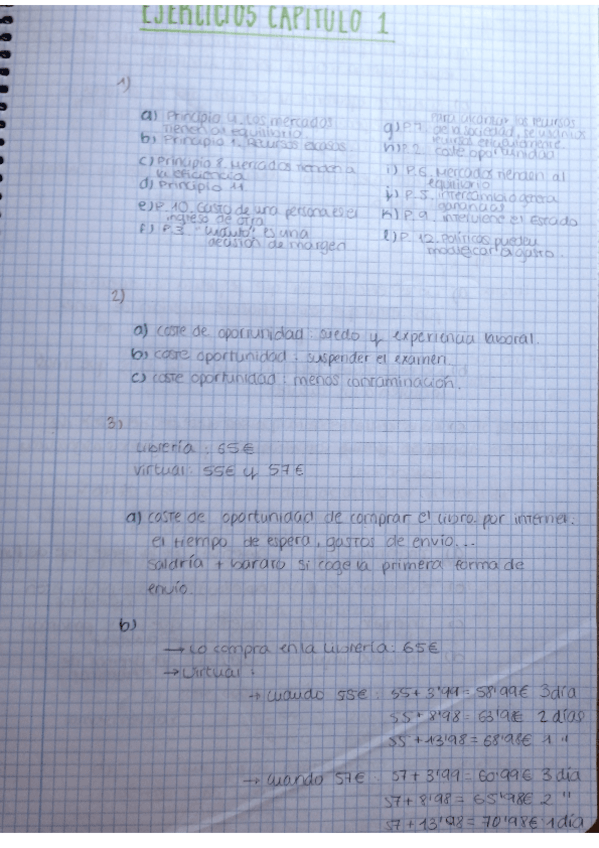 EJERCICIOS CAPITULO 1
1)
a) Principio 4. Los mercados
tienden al equilibrio
b) Principio 1. Recursos escasos
c) Principio 8. Mercados tienden a
la eficiencia
d) Principio 11
e) P.10. Gasto de una persona es el
ingreso de otra
f) P.3 "cuánto" es una
decisión de margen
g) P.7. para alcanzar los recursos
de la sociedad, se
recursos eficientemente
h) P.2. coste oportunidad
i) P.6. Mercados tienden al
equilibrio
j) P.5. intercambio genera
ganancias
k) P.9. interviene el Estado
l) P.12. Políticas pueden
modificar el gasto.
2)
a) coste de oportunidad: sueldo y experiencia laboral.
b) coste oportunidad: suspender el examen
c) coste oportunidad: menos contaminación.
3)
Librería: 65€
Virtual: 55€ y 57€
a) coste de oportunidad de comprar el libro por internet.
el tiempo de espera, gastos de envío...
saldría + barato si coge la primera forma de
envío.
b)
→ Lo compra en la librería: 65€
→ Virtual:
→ cuando 55€: 55 + 3'99 = 58'99€ 3 día
55 + 8'98 = 63'98€ 2 días
55 + 13'98 = 68'98€ 1 "
→ cuando 57€: 57 + 3'99 = 60'99€ 3 día
57 + 8'98 = 65'98€ 2 "
57 + 13'98 = 70'98€ 1 día